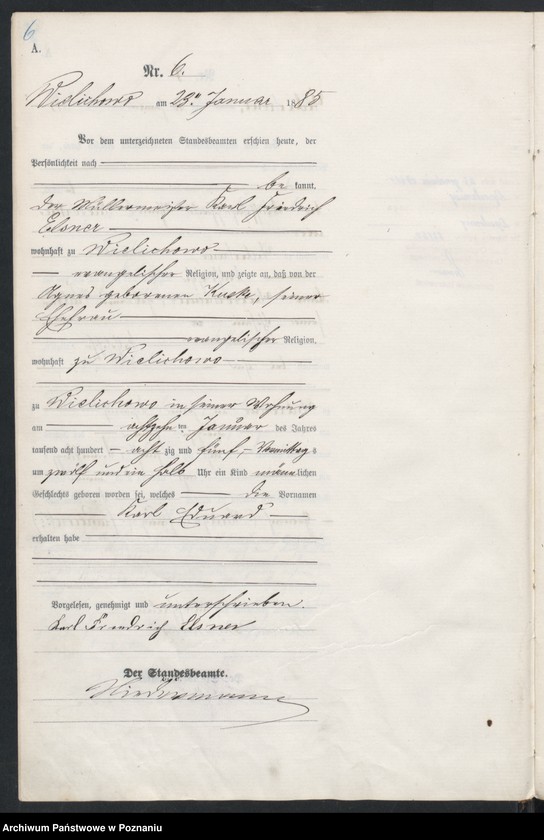 6
A.
Nr. 6.
Wielichowo am 23ten Januar 1885
Vor dem unterzeichneten Standesbeamten erschien heute, der
Persönlichkeit nach
be kannt,
der Müllermeister Karl Friedrich
Elsner
wohnhaft zu Wielichowo
evangelischer Religion, und zeigte an, daß von der
Agnes geborenen Kuske, seiner
Ehefrau
evangelischer Religion,
wohnhaft zu Wielichowo
zu Wielichowo in seiner Wohnung
am achtzehn ten Januar des Jahres
tausend acht hundert acht zig und fünf, Vormittag s
um zwölf und ein halb Uhr ein Kind männlichen
Geschlechts geboren worden sei, welches die Vornamen
Karl Eduard
erhalten habe
Vorgelesen, genehmigt und unterschrieben.
Karl Friedrich Elsner
Der Standesbeamte.
Archiwum Państwowe w Poznaniu